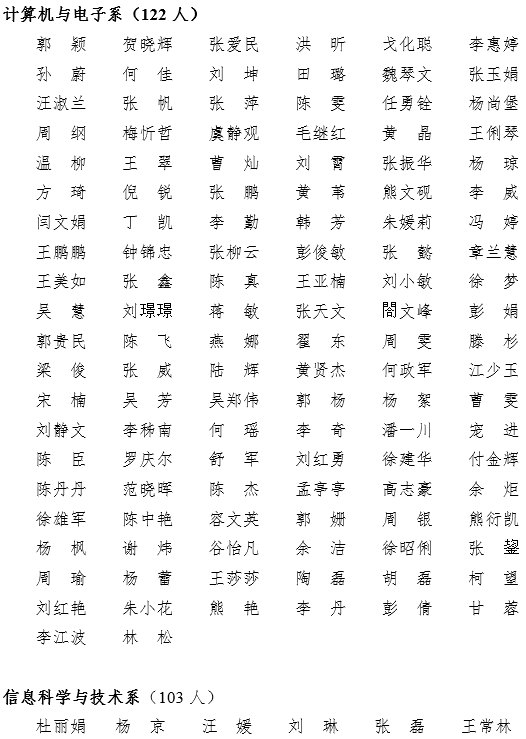 计算机与电子系（122 人）
郭　颖　贺晓辉　张爱民　洪　昕　戈化聪　李惠婷
孙　蔚　何　佳　刘　坤　田　璐　魏琴文　张玉娟
汪淑兰　张　帆　张　萍　陈　雯　任勇铨　杨尚堡
周　纲　梅忻哲　虞静观　毛继红　黄　晶　王俐琴
温　柳　王　翠　曹　灿　刘　霄　张振华　杨　琼
方　琦　倪　锐　张　鹏　黄　苇　熊文砚　李　威
闫文娟　丁　凯　李　勤　韩　芳　朱媛莉　冯　婷
王鹏鹏　钟锦忠　张柳云　彭俊敏　张　懿　章兰慧
王美如　张　鑫　陈　真　王亚楠　刘小敏　徐　梦
吴　慧　刘璟璟　蒋　敏　张天文　閤文峰　彭　娟
郭贵民　陈　飞　燕　娜　翟　东　周　雯　滕　杉
梁　俊　张　威　陆　辉　黄贤杰　何政军　江少玉
宋　楠　吴　芳　吴郑伟　郭　杨　杨　絮　曹　雯
刘静文　李秭南　何　瑶　李　奇　潘一川　宠　进
陈　臣　罗庆尔　舒　军　刘红勇　徐建华　付金辉
陈丹丹　范晓晖　陈　杰　孟亭亭　高志豪　余　炬
徐雄军　陈中艳　容文英　郭　姗　周　银　熊衍凯
杨　枫　谢　炜　谷怡凡　余　洁　徐昭俐　张　鋆
周　瑜　杨　蕾　王莎莎　陶　磊　胡　磊　柯　望
刘红艳　朱小花　熊　艳　李　丹　彭　倩　甘　蓉
李江波　林　松
信息科学与技术系（103 人）
杜丽娟　杨　京　汪　媛　刘　琳　张　磊　王常林